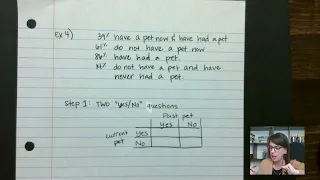 Ex 4) 39% have a pet now & have had a pet
61% do not have a pet now
86% have had a pet.
14% do not have a pet and have
never had a pet.
Step 1: Two "Yes/No" questions
Past pet
Yes No
current Yes
pet No